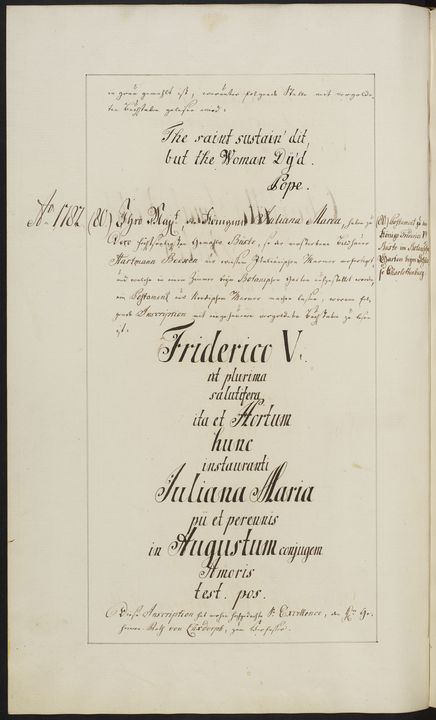 in grün gemahlt ist, worunter folgende Stelle mit vergolde-
ten Buchstaben gelesen wird:
The saint sustain'd it,
but the Woman Dy'd.
Pope.
Aº 1782 (W) Ihro Maj.t, die Königinn Juliana Maria, haben zu
Dero Gemahls Büste, so der verstorbene Bildhauer
Hartmann Beeken aus weissen Italiänischen Marmor verfertiget,
und welche in einem Zimmer beym Botanischen Garten aufgestellet worden,
ein Postament aus Nordischen Marmor machen lassen, woran fol-
gende Inscription mit vergoldete Buchstaben zu lesen
ist:
(W) Postament zu des
Königs Friderici V.
Büste im Botanischen
Garten beym Schloss-
se Charlottenburg.
Friderico V.
ut plurima
salutifera
ita et Hortum
hunc
instauranti
Juliana Maria
pii et perennis
in Augustum conjugem
Amoris
test. pos.
Diese Inscription hat Sr. Excellence, der Hr. Ge-
heime Rath von Luxdorph, zum Verfasser.